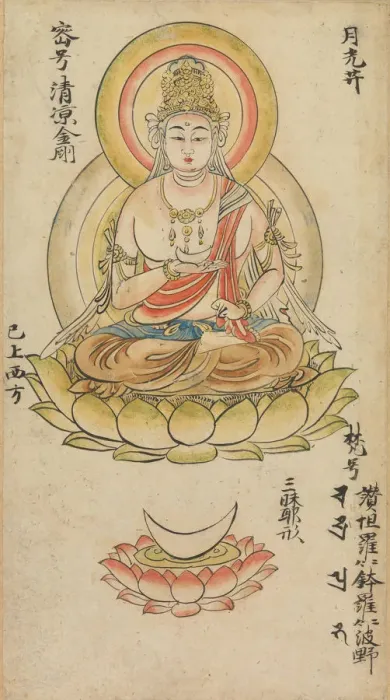 月光𦬇
密号清凉金剛
已上西方
梵号
讚怛羅二合鉢羅二合波野
三昧耶形